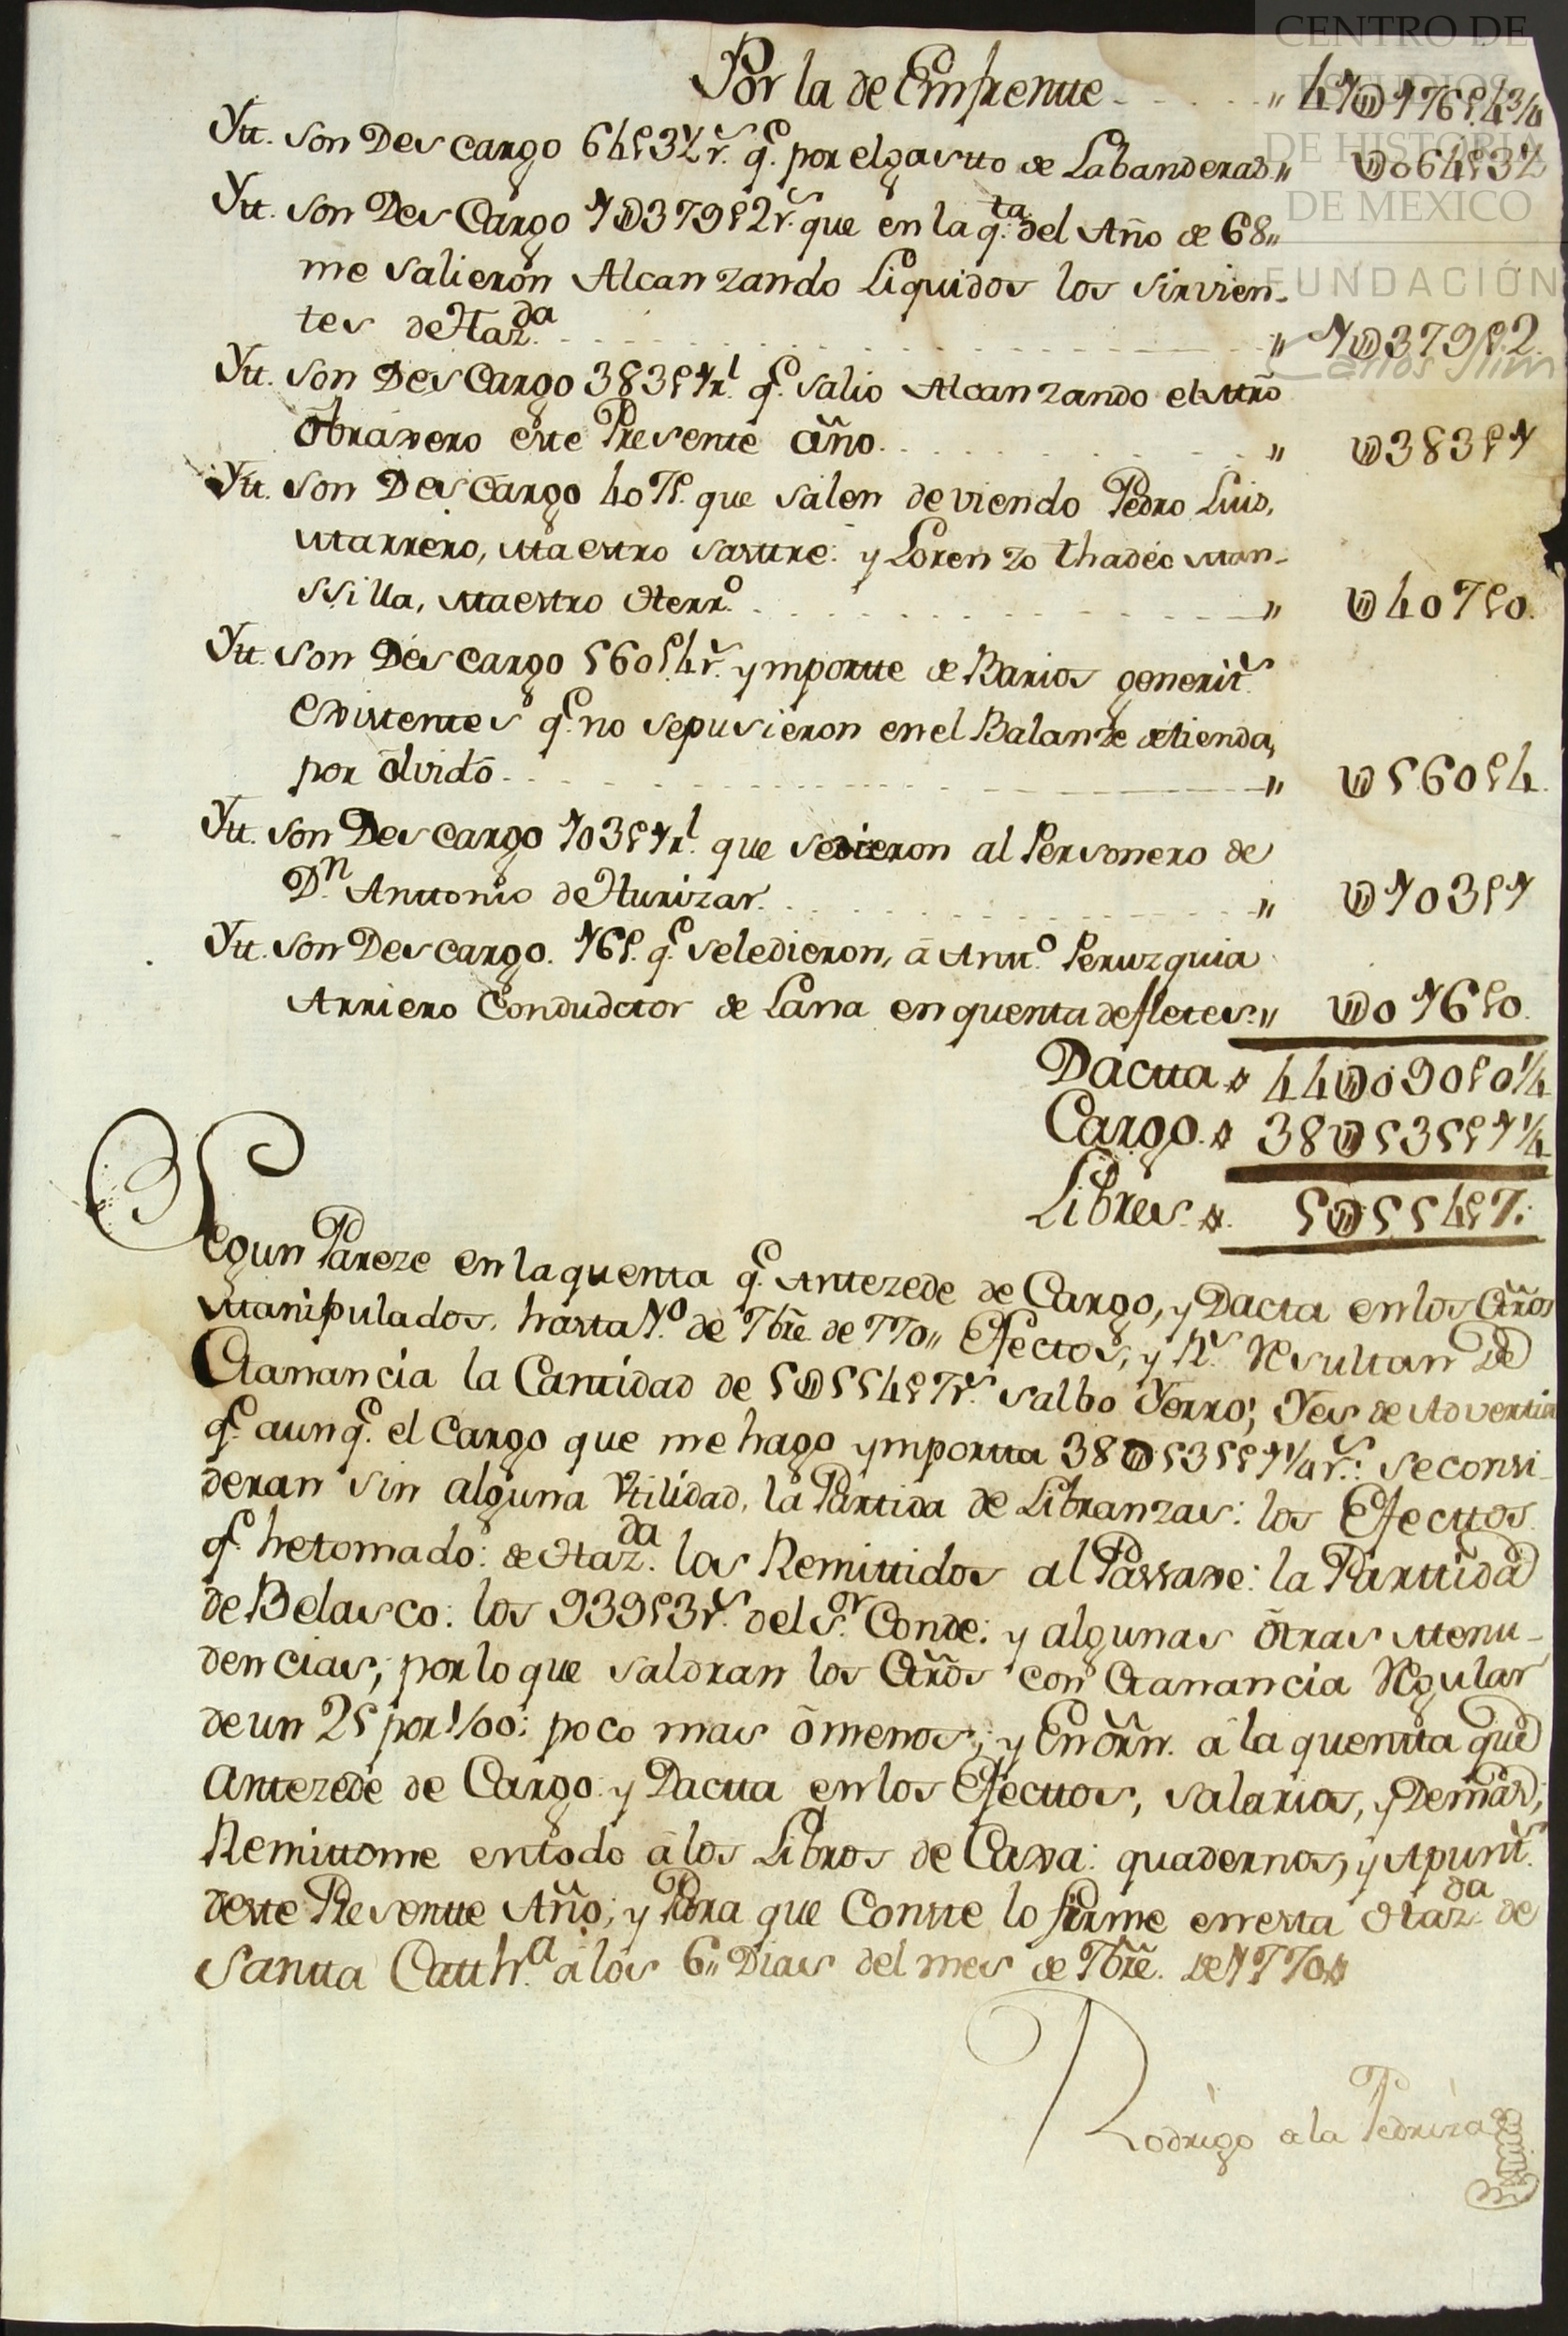 CENTRO DE
ESTUDIOS
DE HISTORIA
DE MEXICO
FUNDACIÓN
Carlos Slim
Por la de Emfrentte - - - - - " 41U176p4 3/4
Ytt. Son Descargo 64p3½ rs. qe. por el gastto de Labanderas " U064p3½
Ytt. Son Des Cargo 1U379p2 rs. que en la qta. del Año de 68"
me Salieron Alcanzando Liquidos los Sirvien-
tes de Hazda. - - - - - " 1U379p2.
Ytt. Son Des Cargo 383p1 rl. qe. Salio Alcanzando el Mrõ
Obraxero este Presente año. - - - - - " U383p1
Ytt. Son Des cargo 407p. que Salen deviendo Pedro Luis,
Marrero, Maestro Sasttre: y Lorenzo thadeo Man-
ssilla, Maestro Herro. - - - - - " U407p0.
Ytt. Son Des cargo 560p4 rs. ymportte de Barios generits.
Existentes qe. no se pusieron en el Balanze de tienda,
por olvido - - - - - " U560p4.
Ytt. Son Des cargo 103p1 rl. que se dieron al Personero de
Dn. Anttonio de Hurizar. - - - - - " U103p1
Ytt. Son Des cargo. 16p. qe. se le dieron, â Antto. Peruzquia
Arriero Condudctor de Lana en quenta de fletes. " U016p0.
Dactta 44U090p0¼
Cargo. 38U535p1¼
Libres. 5U554p7.
Segun Pareze en la quenta qe. Antezede de Cargo, y Dacta en los Años
Manipulados, hasta 1º. de 7bre. de 770" Efectos, y Rs. Resultan de
Ganancia la Cantidad de 5U554p7 rs. salbo Yerro; Yes de Advertir
qe. aunqe. el Cargo que me hago ymportta 38U535p1¼ rs.: se consi-
deran sin alguna Vtilidad, la Partida de Libranzas: los Efecttos
qe. he tomado: de Hazda. los Remittidos al Passaxe: la Parttida
de Belasco: los 939p3 rs. del Sor. Conde: y algunas ôtras Menu-
dencias; por lo que Saldran los Años con Ganancia Regular
de un 25 por 100: poco mas ô menos; y En ôrn. â la quentta que
Antezede de Cargo y Dactta en los Efecttos, Salarios, y Demas;
Remittome en todo â los Libros de Caxa: quadernos, y Apunts.
deste Presentte Año; y Para que Conste lo firme en esta Hazda. de
Santta Catthª. â los 6" Dias del mes de 7bre. de 1770
Rodrigo de la Pedriza